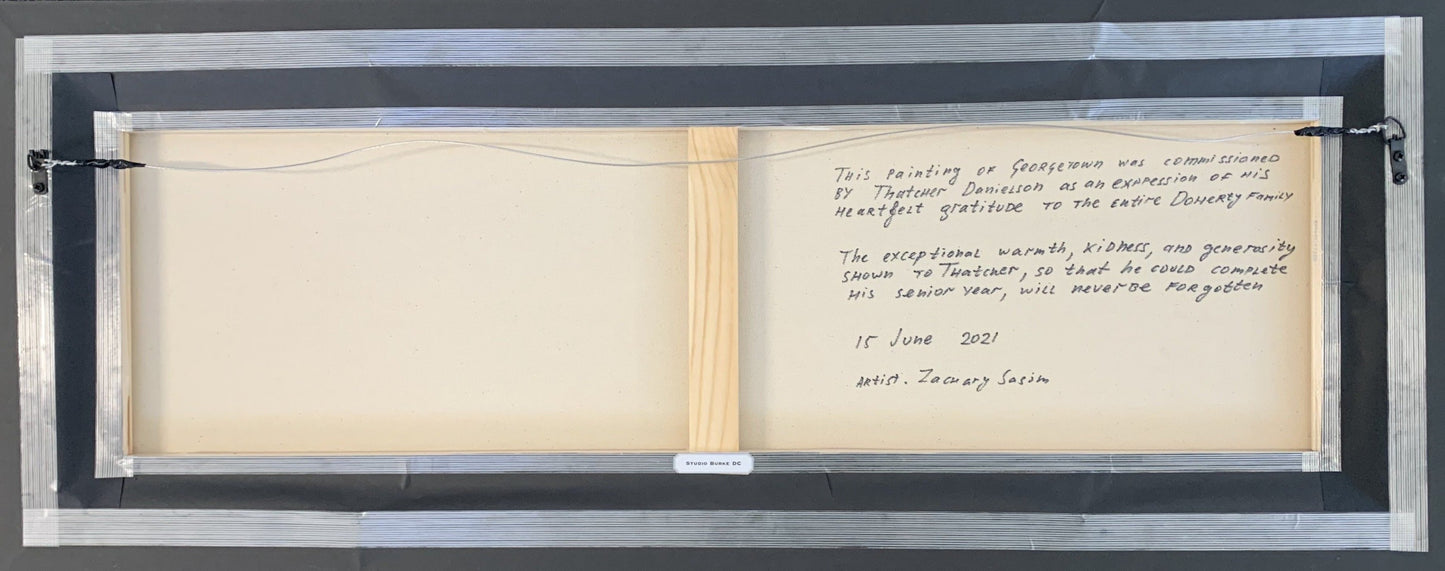 This painting of Georgetown was commissioned
by Thatcher Danielson as an expression of his
heartfelt gratitude to the entire Doherty Family
The exceptional warmth, kidness, and generosity
shown to Thatcher, so that he could complete
his senior year, will never be forgotten
15 June 2021
Artist. Zachary Sasim
Studio Burke DC